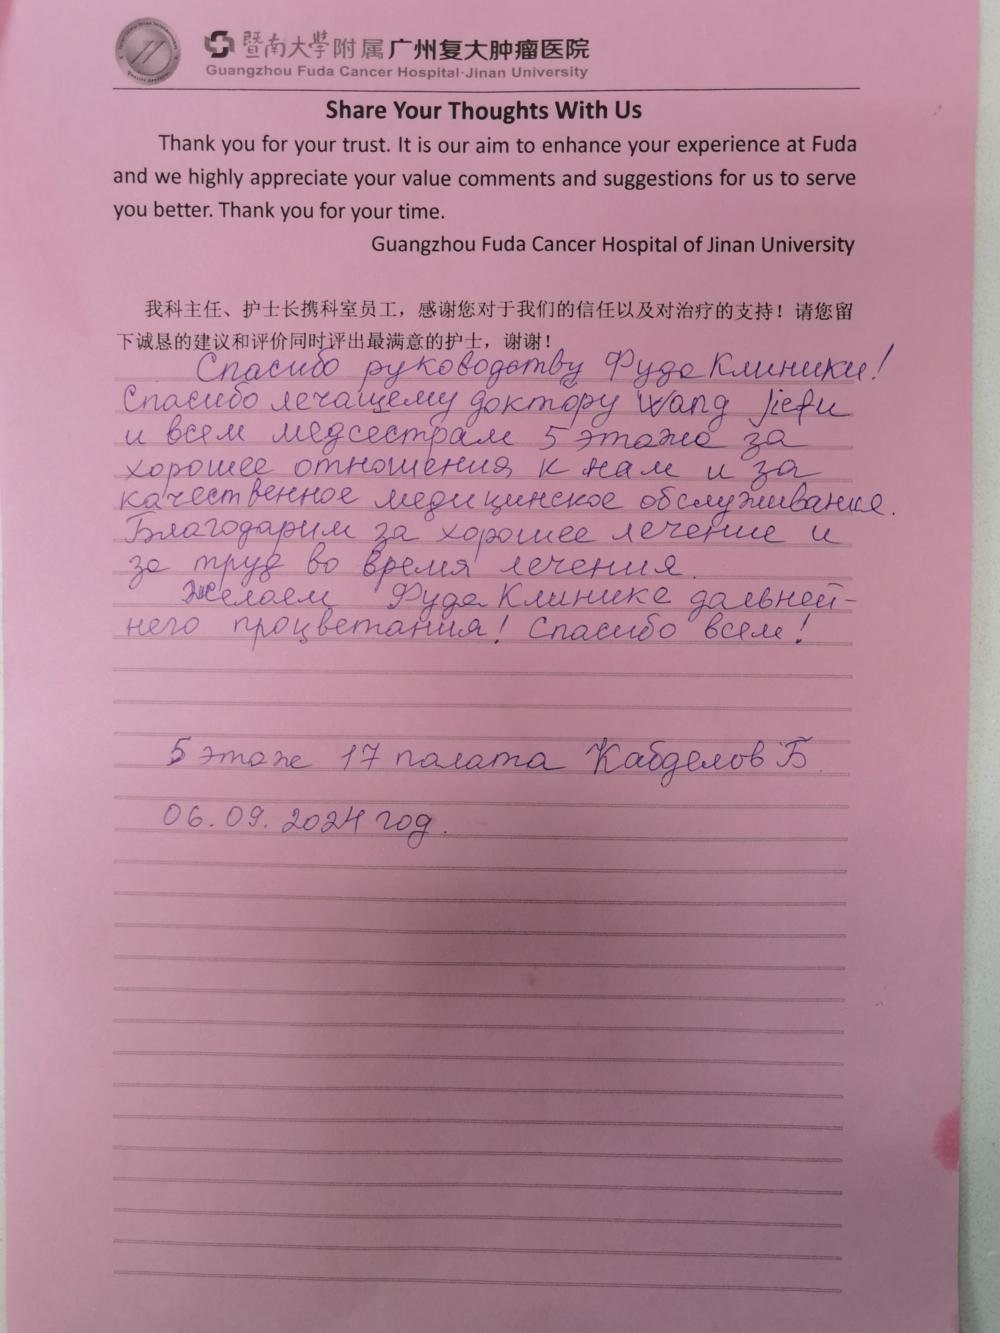 暨南大学附属广州复大肿瘤医院
Guangzhou Fuda Cancer Hospital·Jinan University
Share Your Thoughts With Us
Thank you for your trust. It is our aim to enhance your experience at Fuda
and we highly appreciate your value comments and suggestions for us to serve
you better. Thank you for your time.
Guangzhou Fuda Cancer Hospital of Jinan University
我科主任、护士长携科室员工，感谢您对于我们的信任以及对治疗的支持！请您留
下诚恳的建议和评价同时评出最满意的护士，谢谢！
Спасибо руководству Фуда Клиники!
Спасибо лечащему доктору Wang Jiefu
и всем медсестрам 5 этажа за
хорошее отношения к нам и за
качественное медицинское обслуживание.
Благодарим за хорошее лечение и
за труд во время лечения.
Желаем Фуда Клинике дальней-
него процветания! Спасибо всем!
5 этаж 17 палата Кабделов Б
06.09.2024 год.